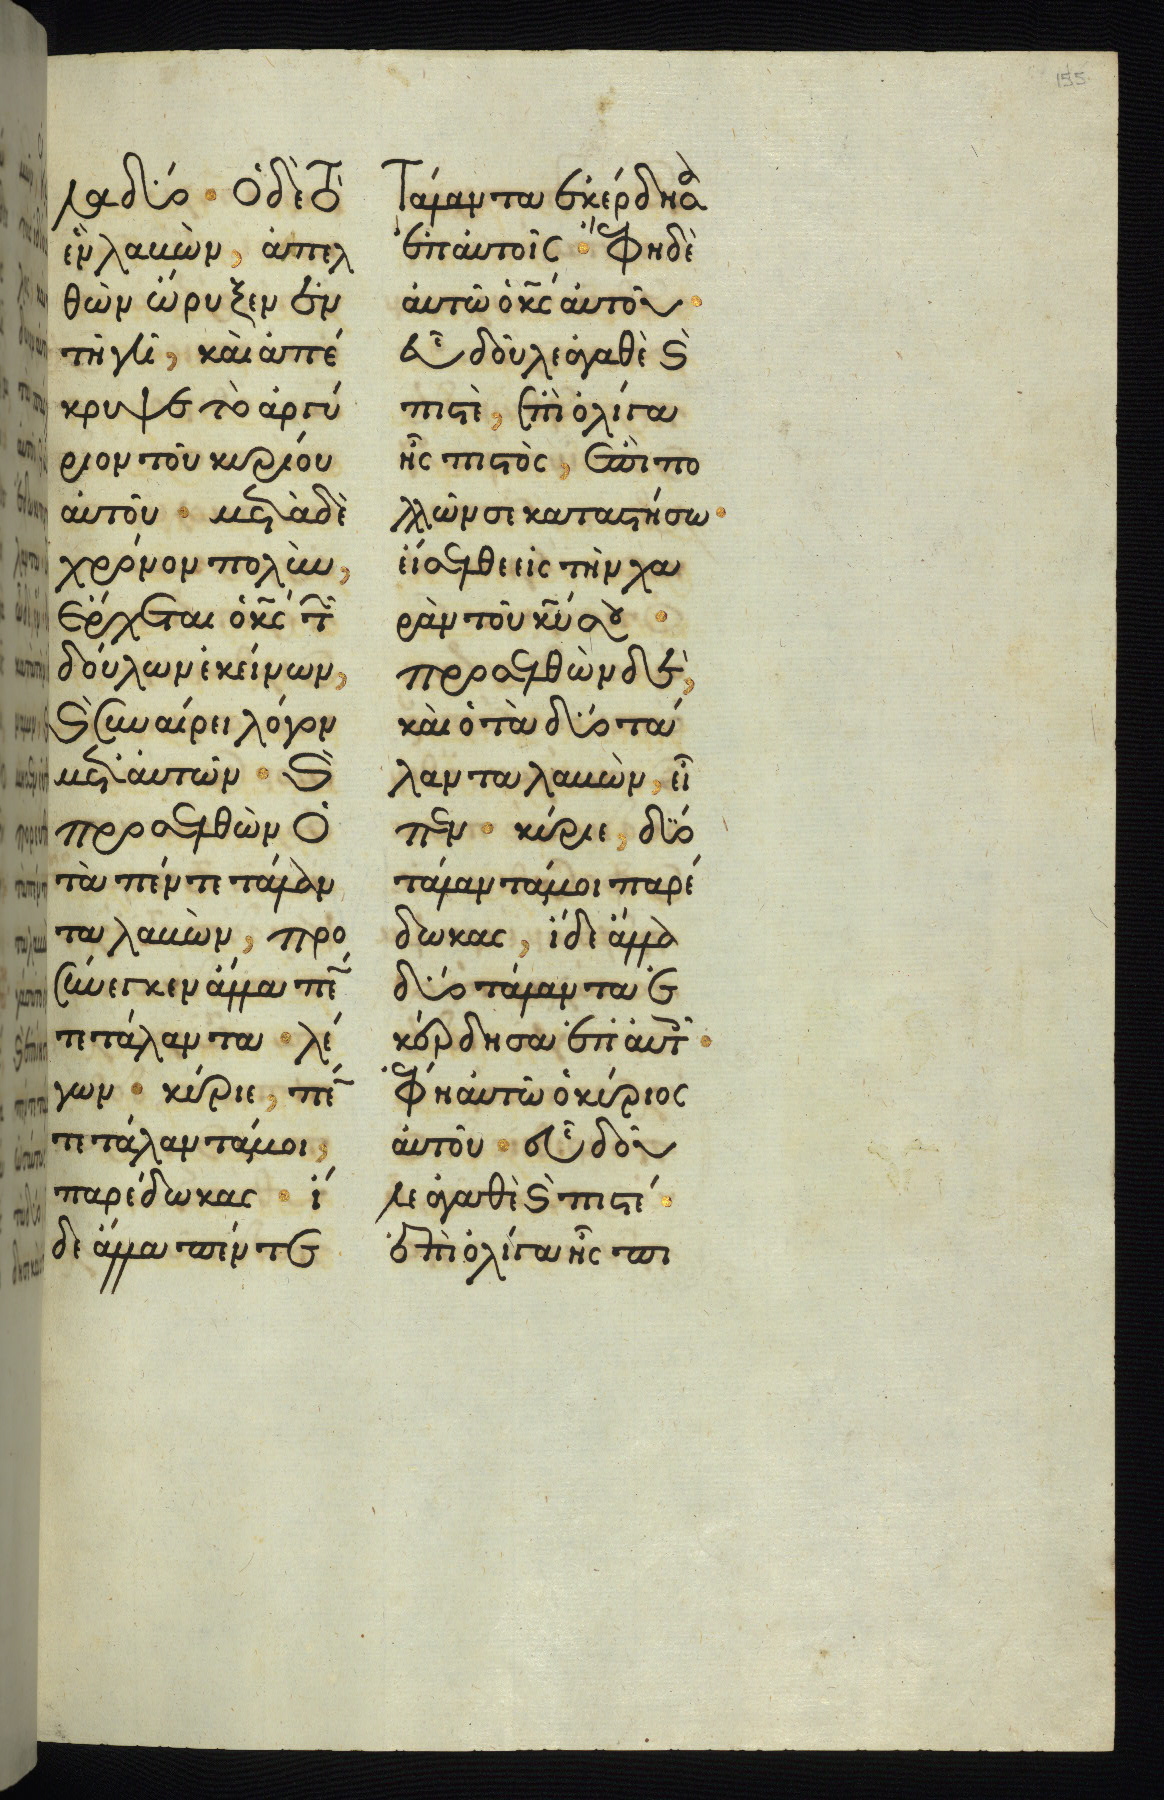 155
λα δύο · Ὁ δὲ τὸ
ἓν λαβὼν, ἀπελ
θὼν ὤρυξεν ἐν
τῇ γῇ, καὶ ἀπέ
κρυψε τὸ ἀργύ
ριον τοῦ κυρίου
αὐτοῦ · μετὰ δὲ
χρόνον πολὺν,
ἔρχεται ὁ κς τῶν
δούλων ἐκείνων,
καὶ συναίρει λόγον
μετ' αὐτῶν · καὶ
προσελθὼν ὁ
τὰ πέντε τάλαν
τα λαβὼν, προ
σήνεγκεν ἄλλα πέν
τε τάλαντα · λέ
γων · κύριε, πέν
τε τάλαντά μοι,
παρέδωκας · ἴ
δε ἄλλα πέντε
τάλαντα ἐκέρδησα
ἐπ' αὐτοῖς · Ἔφη δὲ
αὐτῷ ὁ κς αὐτοῦ ·
εὖ δοῦλε ἀγαθὲ καὶ
πιστὲ, ἐπὶ ὀλίγα
ἦς πιστὸς, ἐπὶ πο
λλῶν σε καταστήσω ·
εἴσελθε εἰς τὴν χα
ρὰν τοῦ κυ σου ·
προσελθὼν δὲ,
καὶ ὁ τὰ δύο τά
λαντα λαβὼν, εἶ
πεν · κύριε, δύο
τάλαντά μοι παρέ
δωκας, ἴδε ἄλλα
δύο τάλαντα ἐ
κέρδησα ἐπ' αὐτοῖς ·
Ἔφη αὐτῷ ὁ κύριος
αὐτοῦ · εὖ δοῦ
λε ἀγαθὲ καὶ πιστέ ·
ἐπὶ ὀλίγα ἦς πι